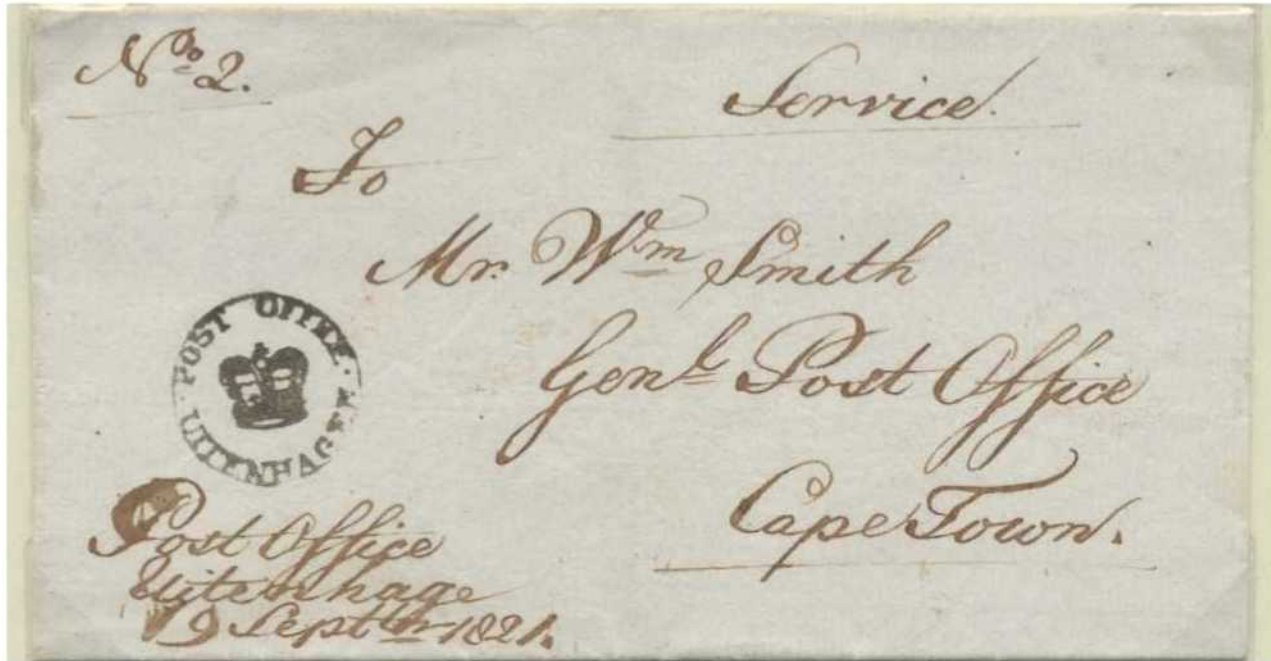 No 2.
Service.
To
Mr. Wm Smith
Genl Post Office
Cape Town.
POST OFFICE
UITENHAGE
Post Office
Uitenhage
19 Septbr 1821.